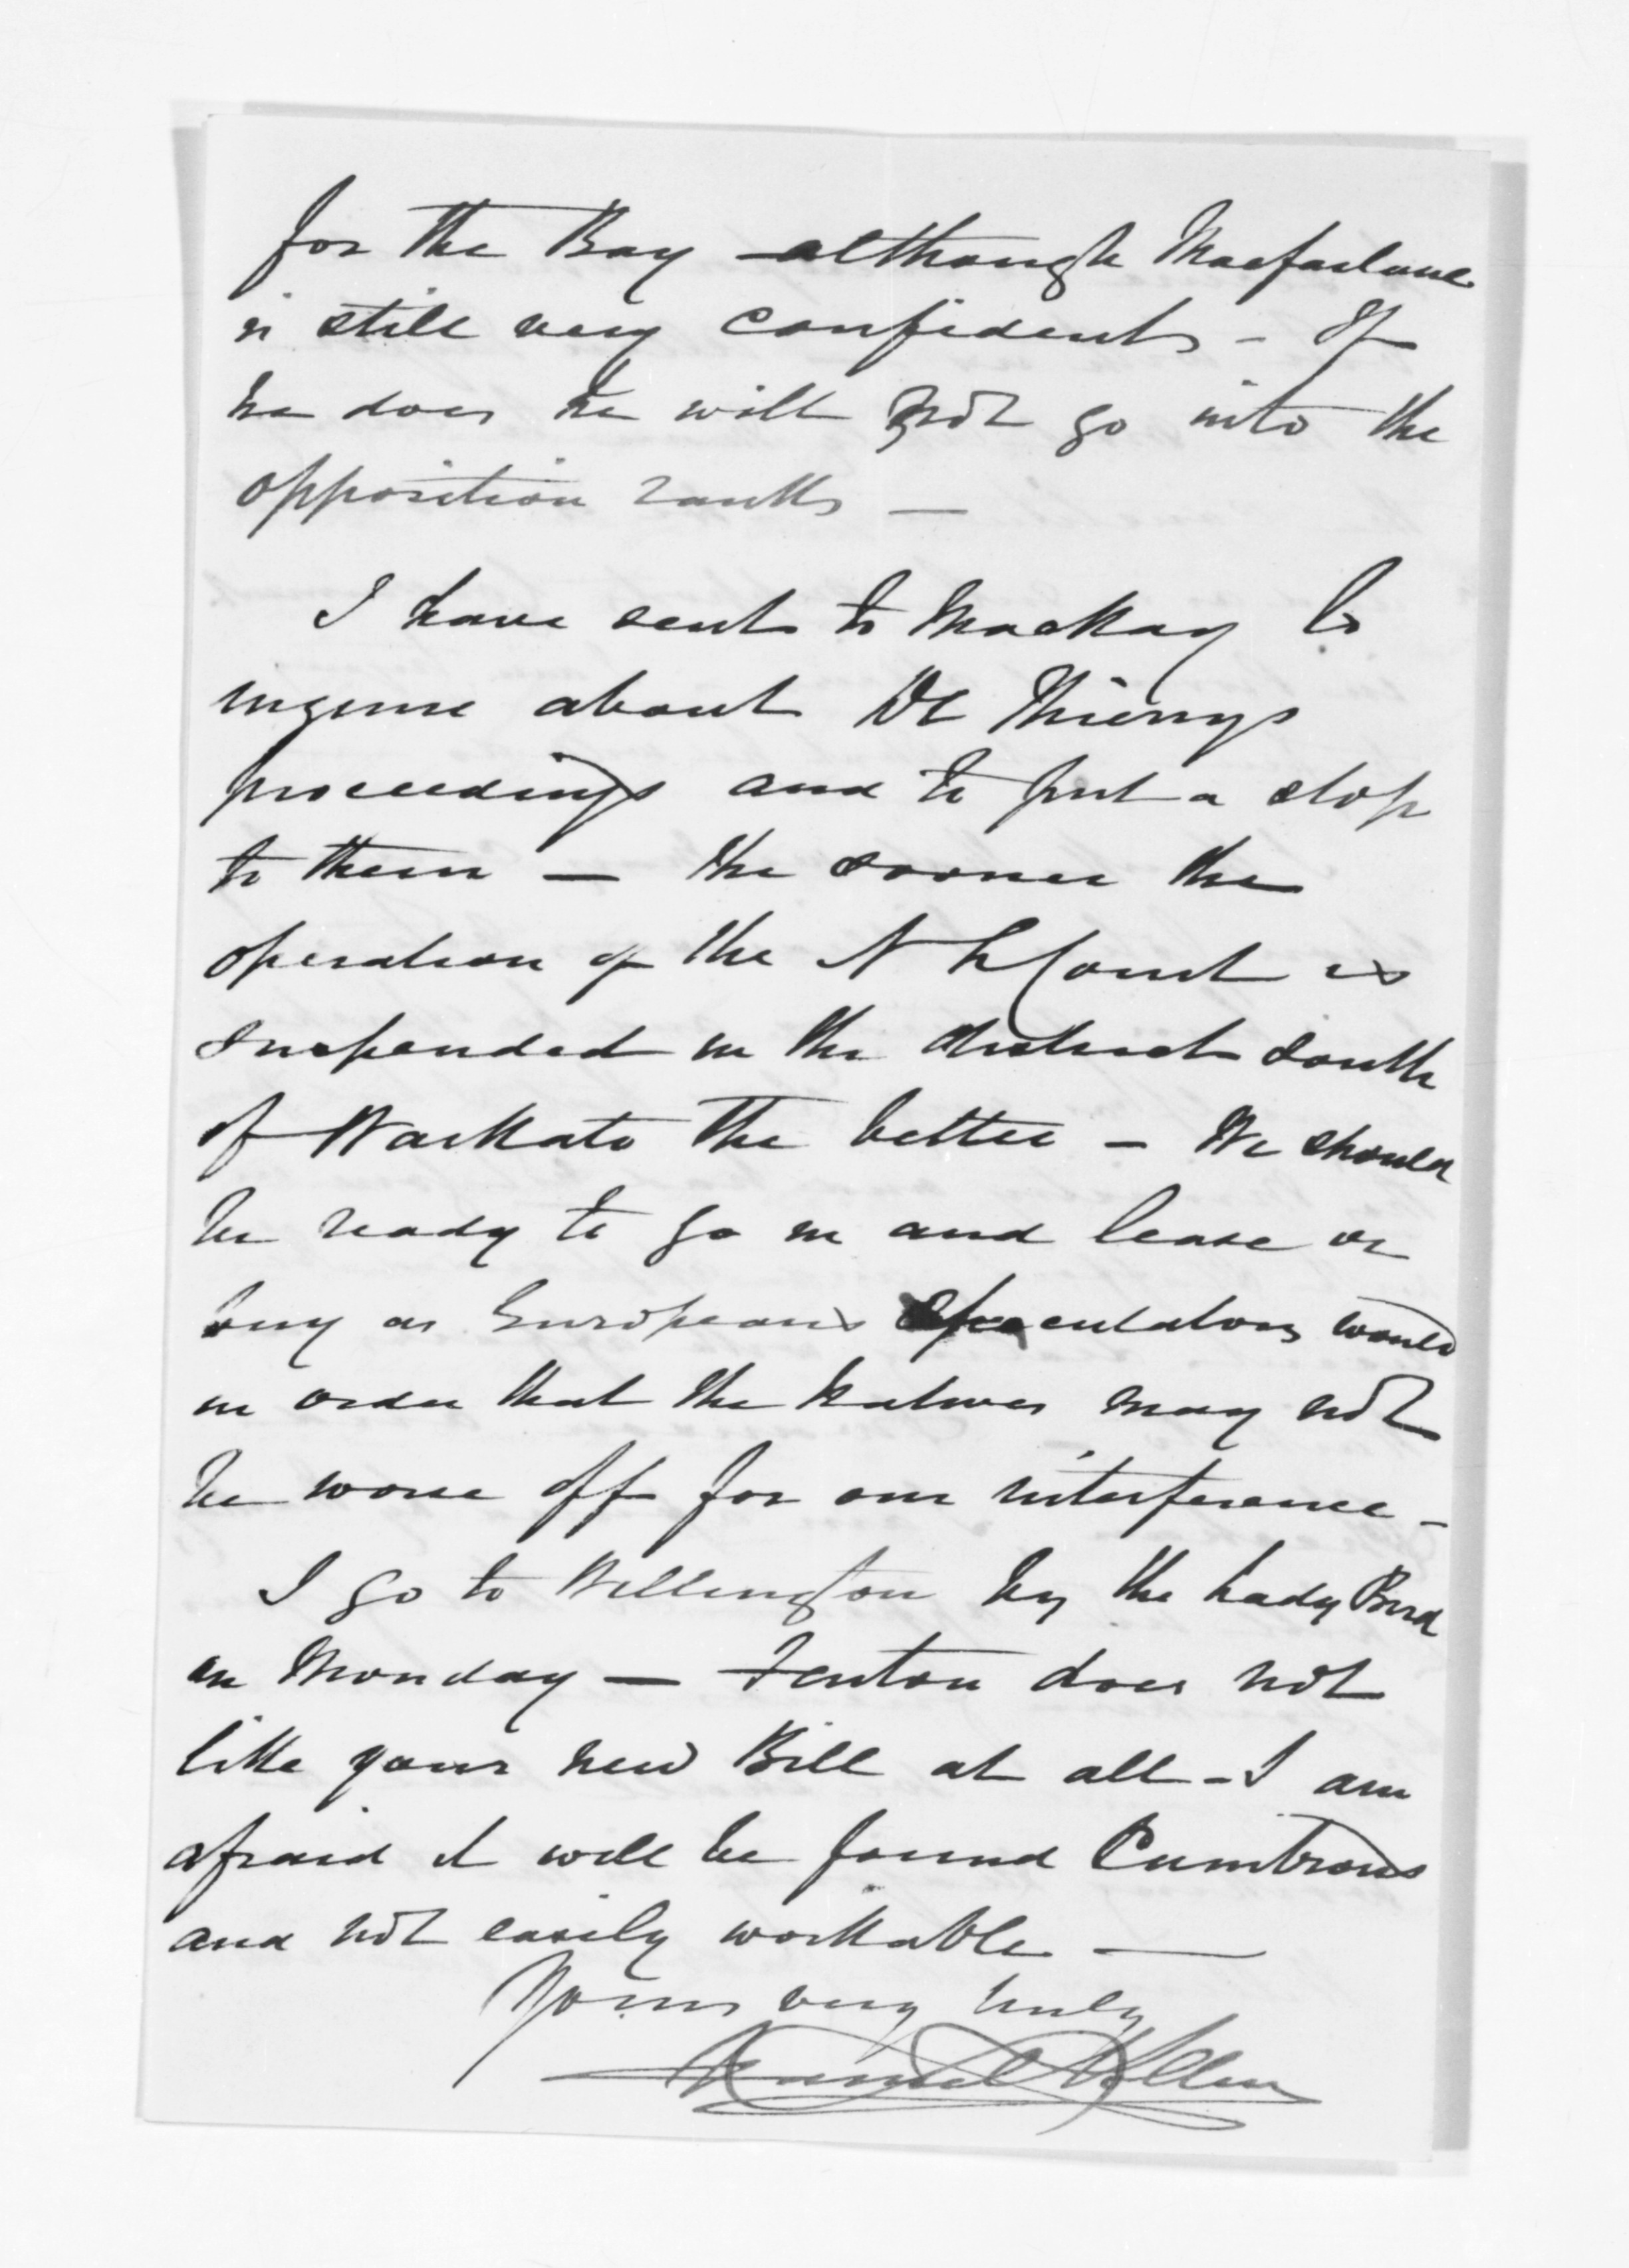 for the Bay although Macfarlane
is still very confident - If
he does he will not go into the
opposition ranks —
I have sent to MacKay to
inquire about De Thierrys
proceedings and to put a stop
to them — The sooner the
operation of the N L Court is
suspended in the district south
of Waikato the better - We should
be ready to go in and lease or
buy as European speculators would
in order that the Natives may not
be worse off for our interference -
I go to Wellington by the Lady Bird
on Monday — Fenton does not
like your new Bill at all - I am
afraid it will be found Cumbrous
and not easily workable —
Yours very truly
Daniel Pollen